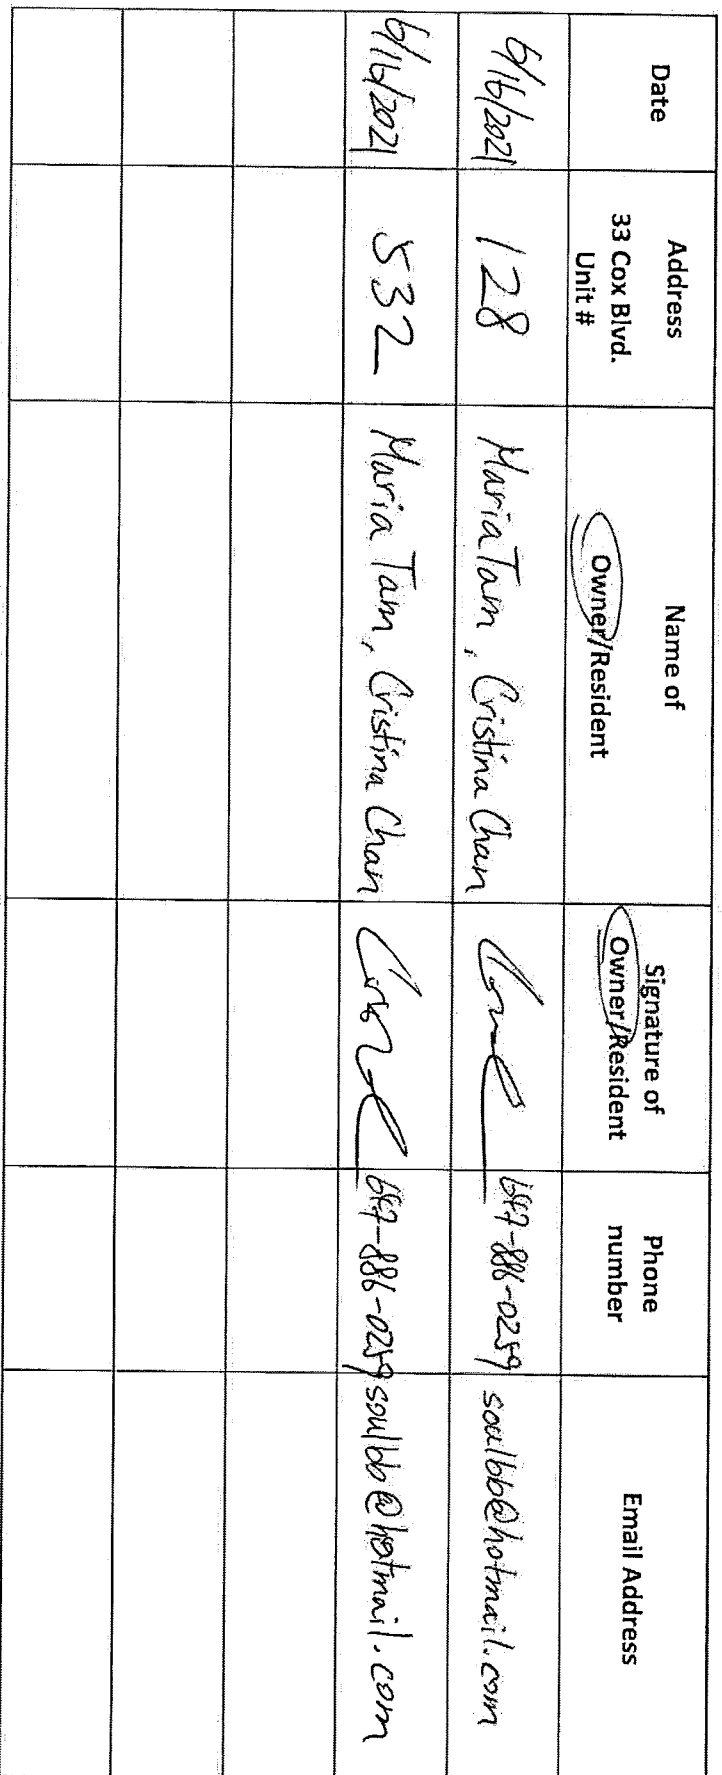 Date
Address
33 Cox Blvd.
Unit #
Name of
Owner/Resident
Signature of
Owner/Resident
Phone
number
Email Address
6/16/2021
128
Maria Tam, Cristina Chan
647-886-0259
soulbb@hotmail.com
6/16/2021
532
Maria Tam, Cristina Chan
647-886-0259
soulbb@hotmail.com